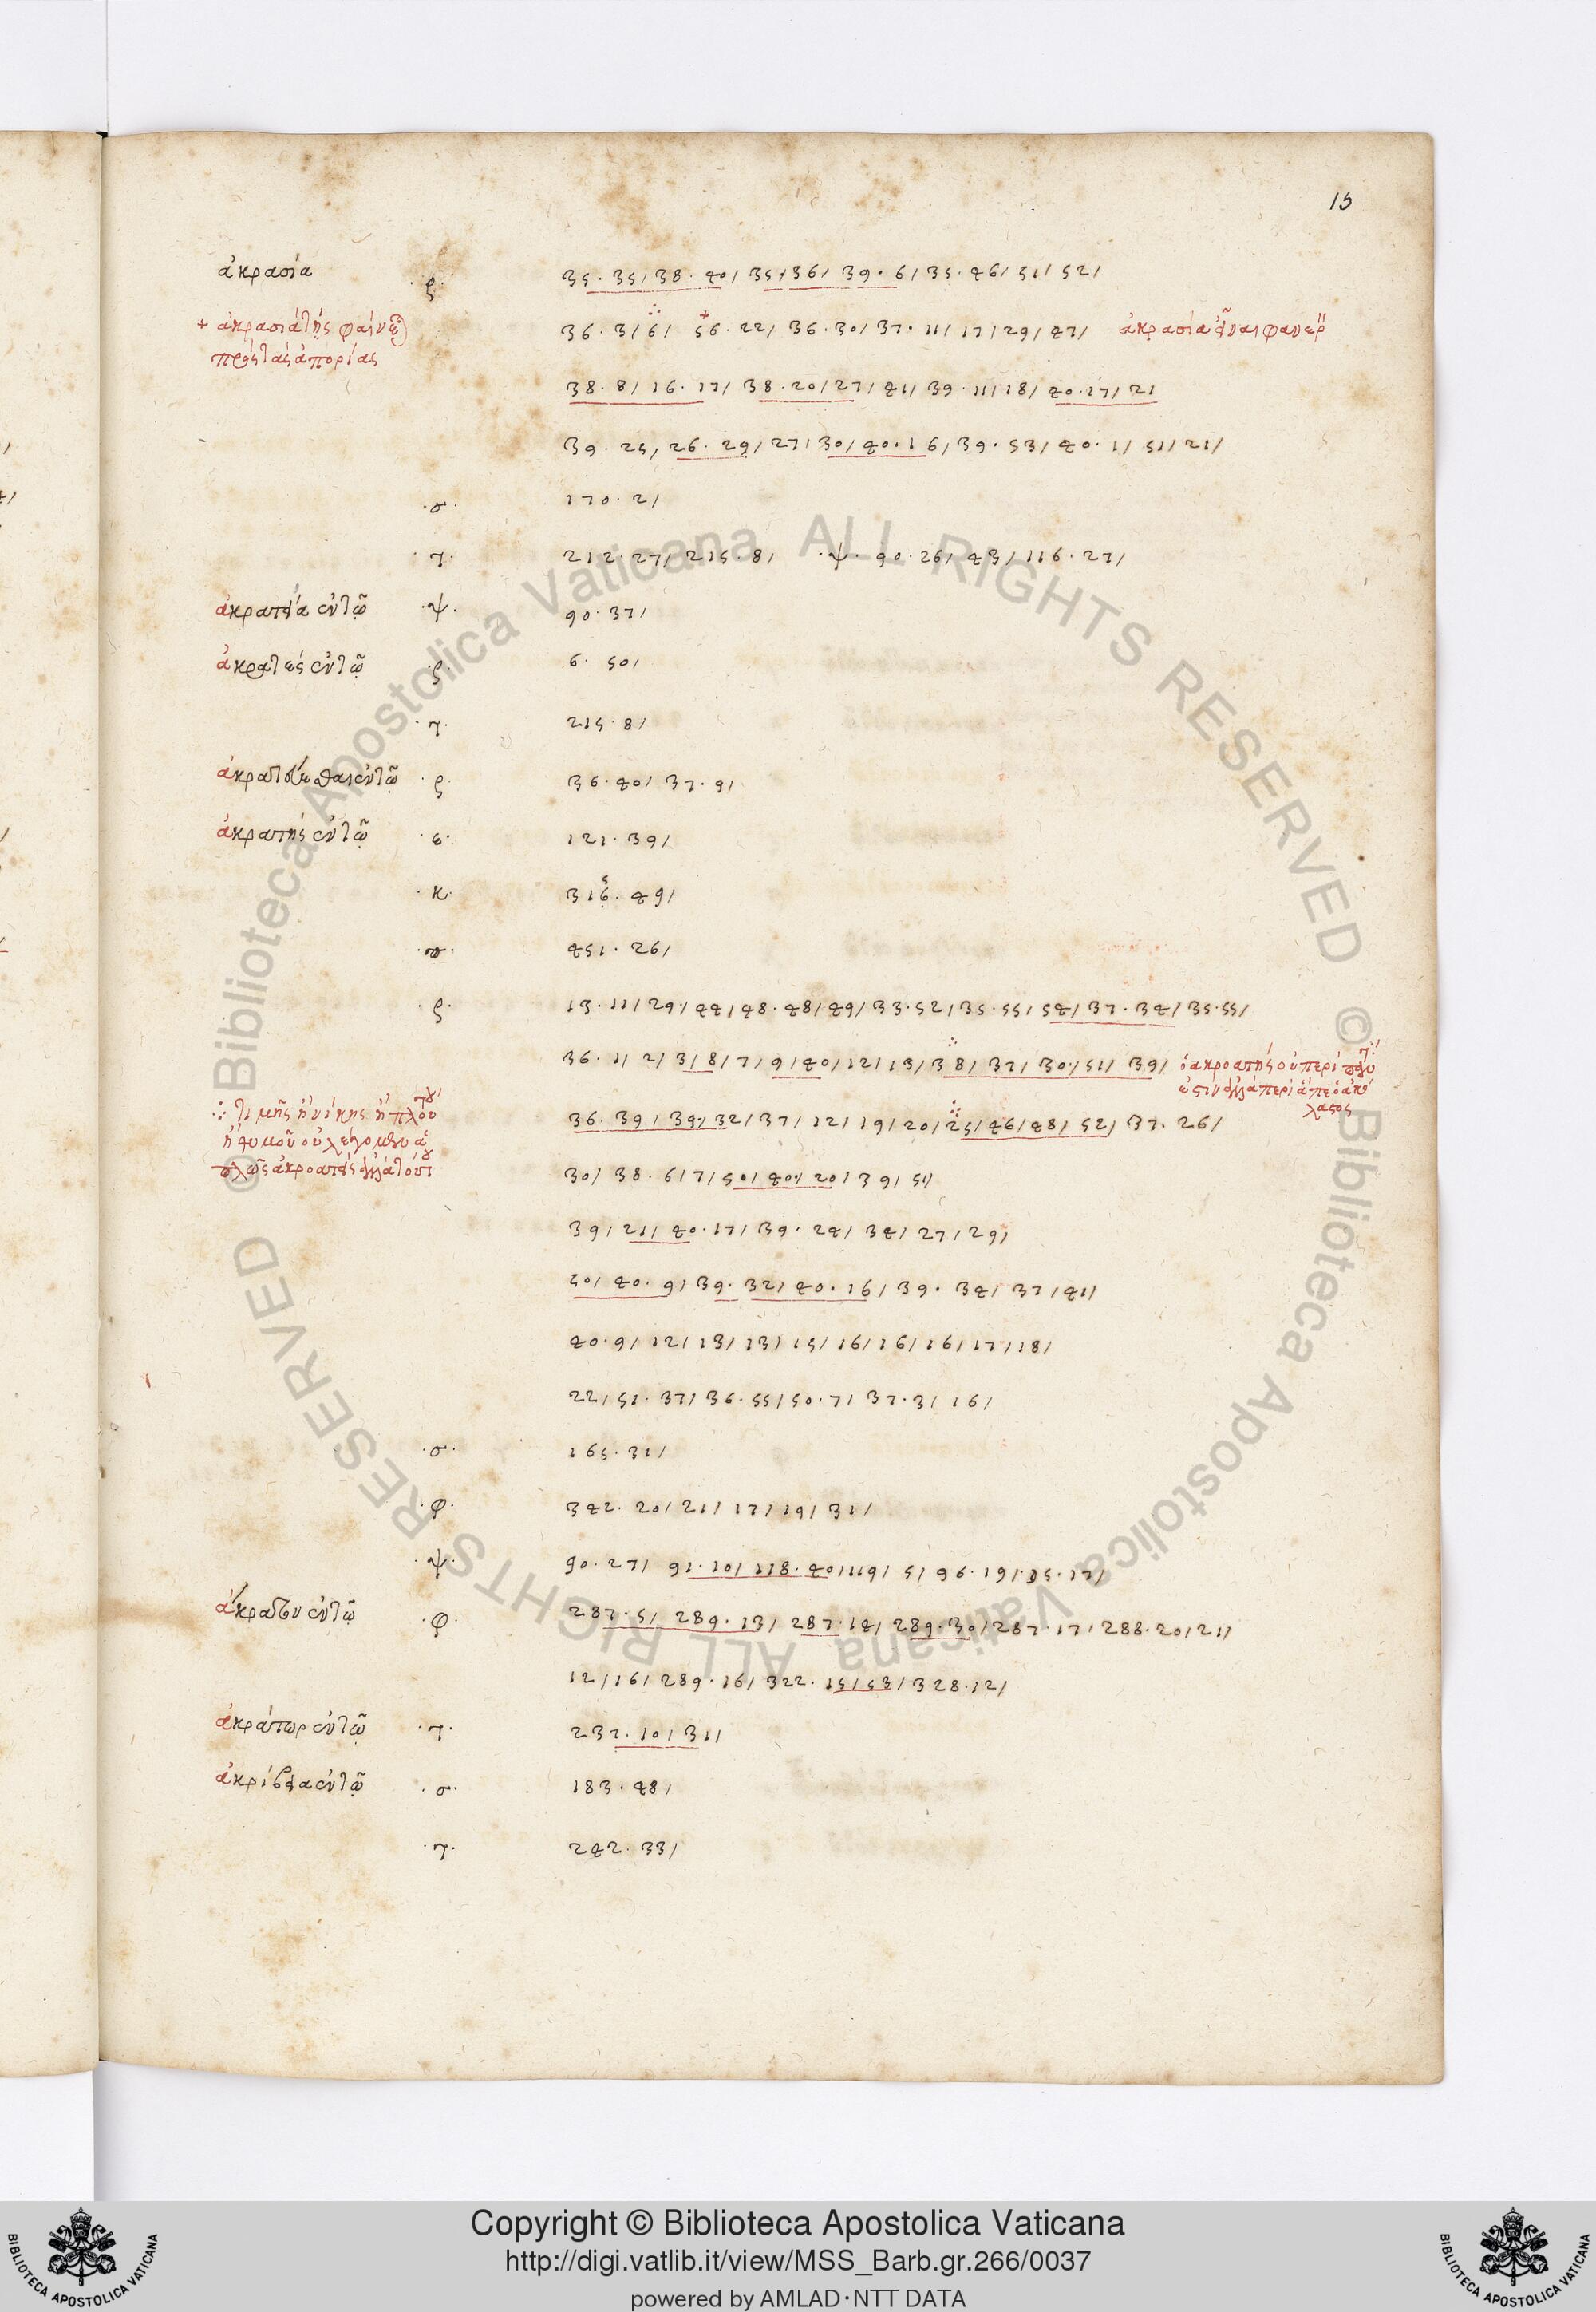 15
ἀκρασία ·ϛ· 35 · 35 / 38 · 40 / 35 / 36 / 39 · 6 / 35 · 46 / 51 / 52 /
+ ἀκρασιά τῆς φαίνε 36 · 3 / 6 / 56 · 22 / 36 · 30 / 37 · 11 / 17 / 29 / 47 / ἀκρασία εἶναι φανερ
πρὸς τὰς ἀπορίας
38 · 8 / 16 · 17 / 38 · 20 / 27 / 41 / 39 · 11 / 18 / 40 · 17 / 21
39 · 25 / 26 · 29 / 27 / 30 / 40 · 16 / 39 · 53 / 40 · 1 / 51 / 21 /
·σ· 170 · 2 /
·τ· 212 · 27 / 215 · 8 / ·ψ· 90 · 26 / 43 / 116 · 27 /
ἀκρατεία ἐν τῷ ·ψ· 90 · 37 /
ἀκρατές ἐν τῷ ·ϛ· 6 · 50 /
·τ· 215 · 8 /
ἀκρατεύεσθαι ἐν τῷ ·ϛ· 36 · 40 / 37 · 9 /
ἀκρατής ἐν τῷ ·ε· 121 · 39 /
·κ· 316 · 49 /
451 · 26 /
·ϛ· 13 · 11 / 29 / 44 / 48 · 48 / 49 / 33 · 52 / 35 · 55 / 54 / 37 · 34 / 35 · 55 /
36 · 1 / 2 / 3 / 8 / 7 / 9 / 40 / 12 / 13 / 38 / 37 / 30 / 51 / 39 / ὁ ἀκρατής οὐ περὶ
ἐστὶν ἀλλὰ περὶ ἅπερ ὁ ἀκό
λαστος
∴ τιμῆς ἢ νίκης ἢ πλού 36 · 39 / 39 / 32 / 37 / 12 / 19 / 20 / 25 / 46 / 48 / 52 / 37 · 26 /
ἢ θυμοῦ οὐ λέγομεν ἁ
πλῶς ἀκρατεῖς ἀλλὰ 30 / 38 · 6 / 7 / 50 / 40 / 20 / 39 / 51 /
39 / 21 / 40 · 17 / 39 · 24 / 34 / 27 / 29 /
50 / 40 · 9 / 39 · 32 / 40 · 16 / 39 · 34 / 37 / 41 /
40 · 9 / 12 / 13 / 13 / 15 / 16 / 16 / 16 / 17 / 18 /
22 / 51 · 37 / 36 · 55 / 50 · 7 / 37 · 3 / 16 /
·σ· 165 · 31 /
·φ· 342 · 20 / 21 / 17 / 19 / 31 /
·ψ· 90 · 27 / 91 · 10 / 118 · 40 / 119 / 5 / 96 · 19 / 35 · 17 /
ἄκρατον ἐν τῷ ·φ· 287 · 5 / 289 · 13 / 287 · 14 / 289 · 30 / 287 · 17 / 288 · 20 / 21 /
12 / 16 / 289 · 16 / 322 · 15 / 53 / 328 · 12 /
ἀκράτωρ ἐν τῷ ·τ· 237 · 10 / 31 /
ἀκρίβεια ἐν τῷ ·σ· 183 · 48 /
·τ· 242 · 33 /
© Biblioteca Apostolica Vaticana ALL RIGHTS RESERVED © Biblioteca Apostolica Vaticana ALL RIGHTS RESERVED
Copyright © Biblioteca Apostolica Vaticana
http://digi.vatlib.it/view/MSS_Barb.gr.266/0037
powered by AMLAD·NTT DATA
BIBLIOTECA APOSTOLICA VATICANA
BIBLIOTECA APOSTOLICA VATICANA